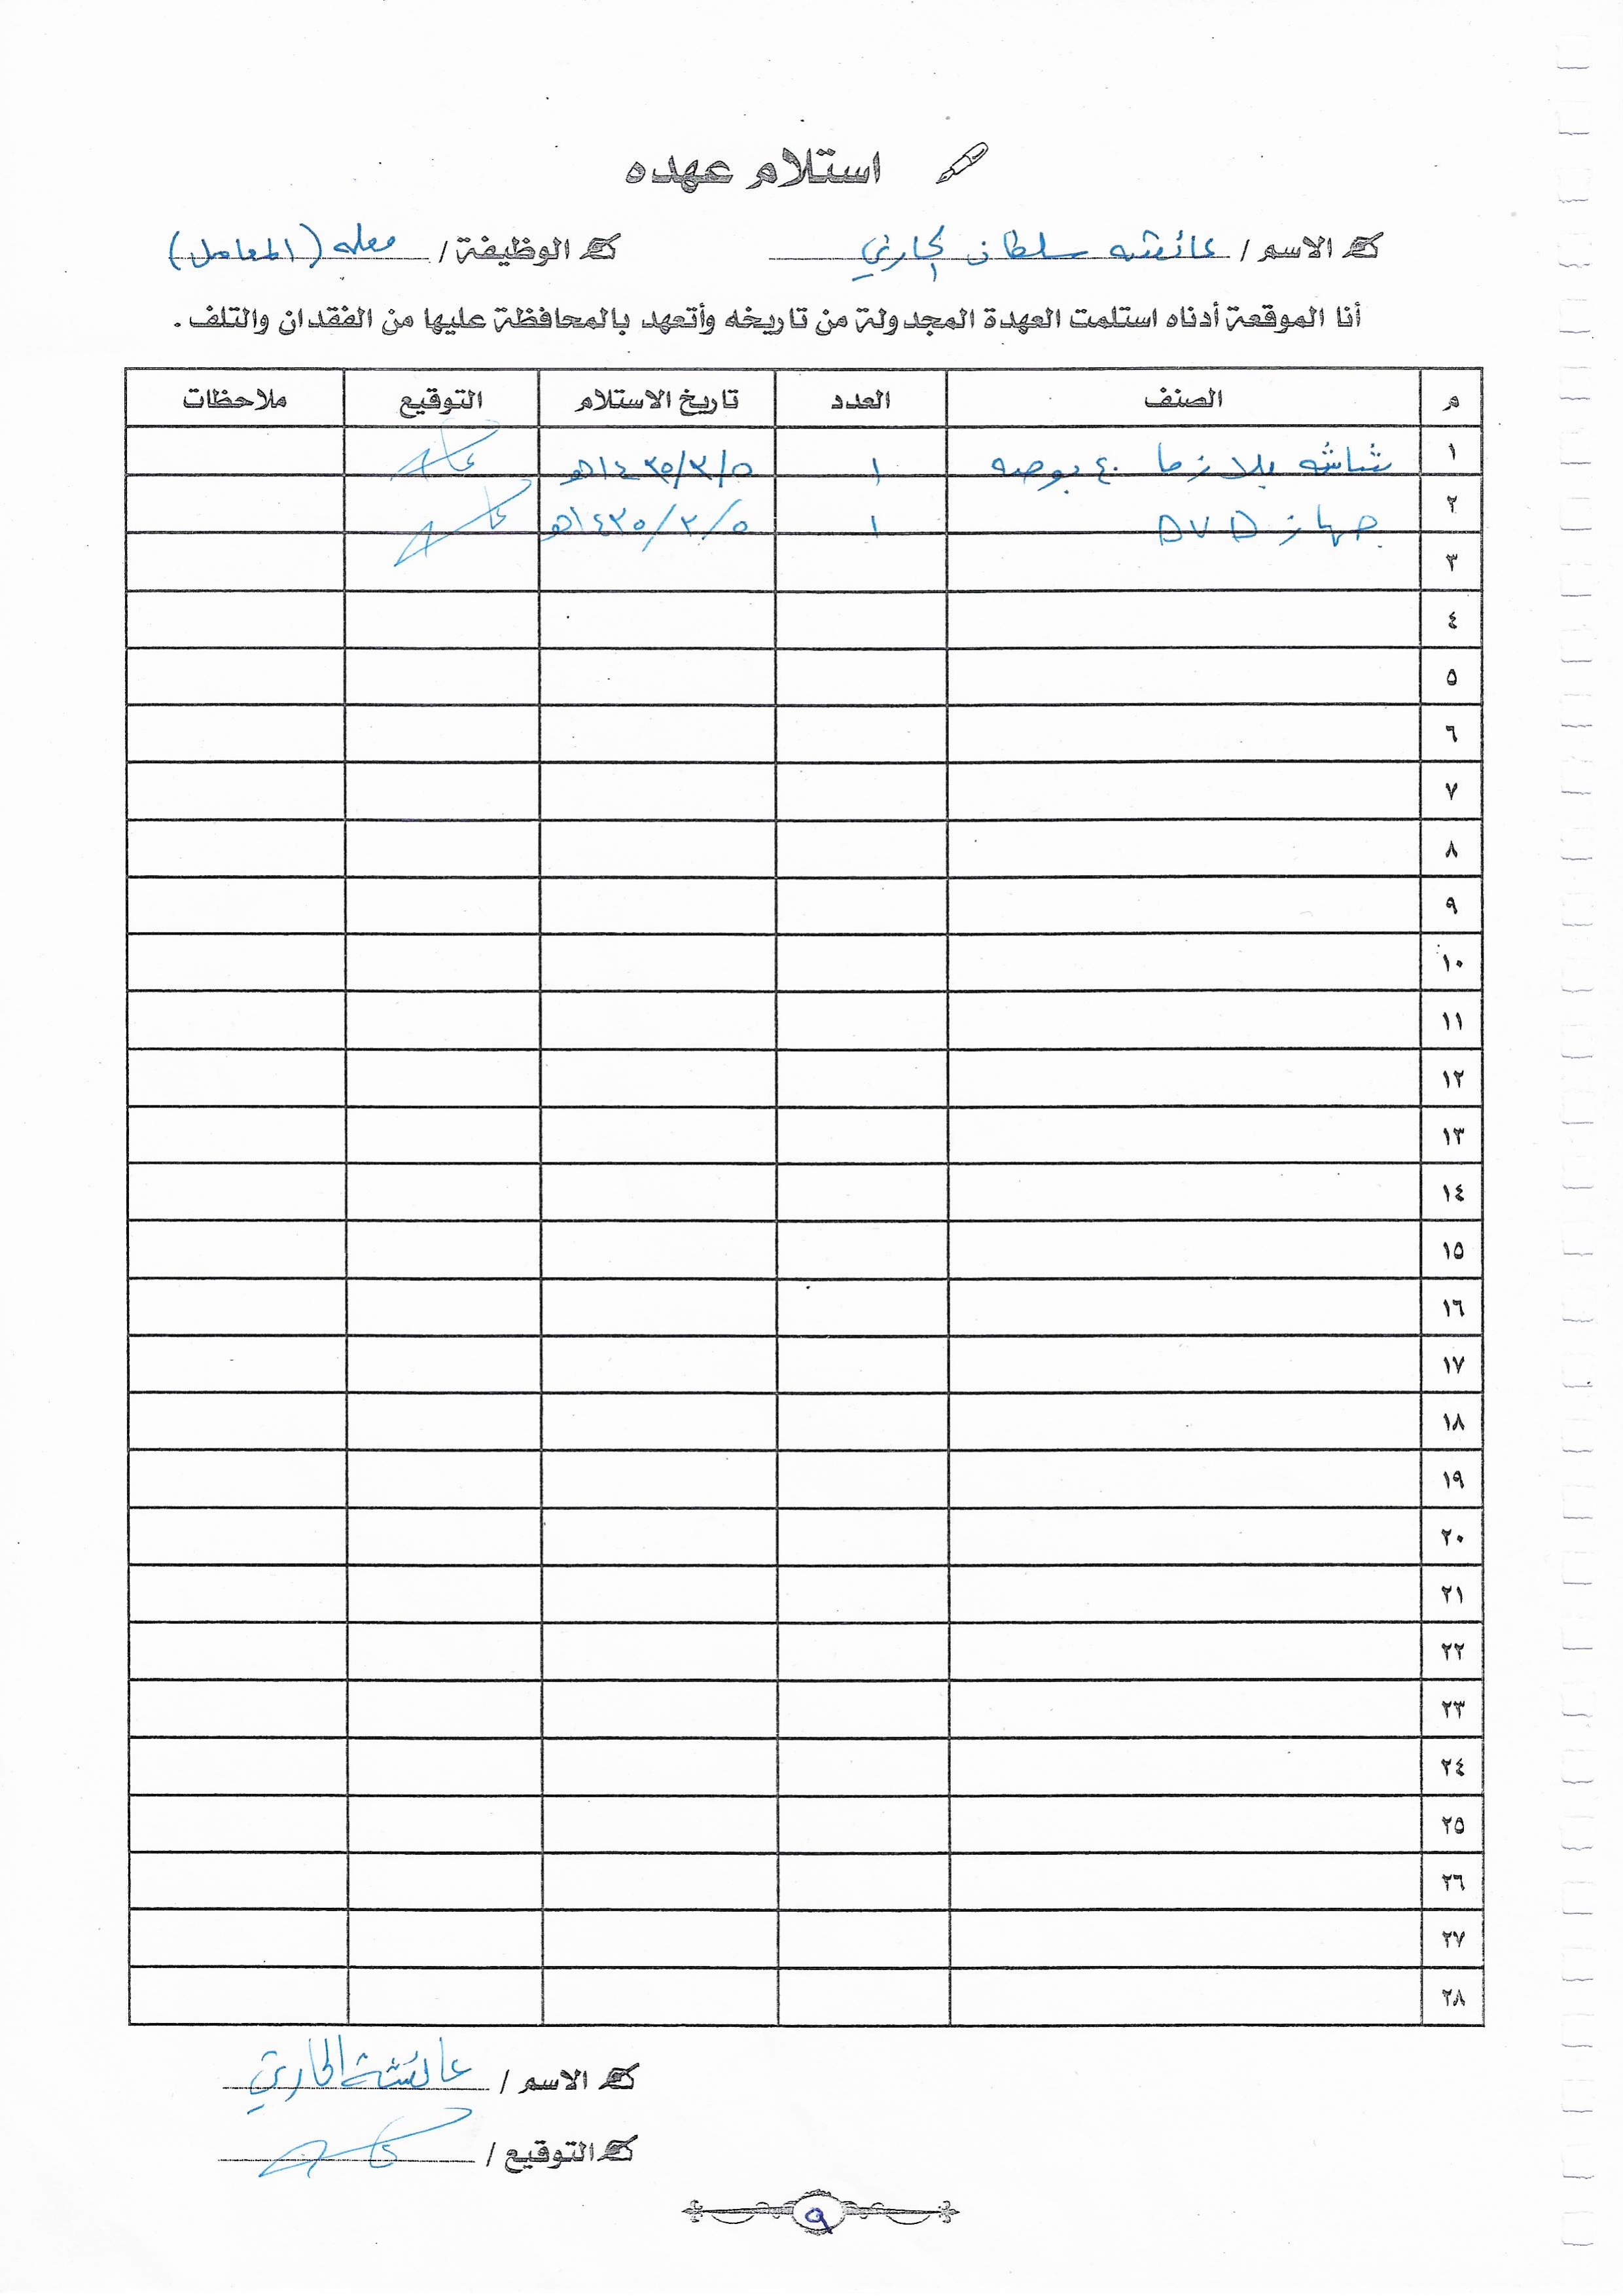 استلام عهده
الاسم / عائشه سلطان الحارثي الوظيفة / معلمه (المعامل)
أنا الموقعة أدناه استلمت العهدة المجدولة من تاريخه وأتعهد بالمحافظة عليها من الفقدان والتلف .
م الصنف العدد تاريخ الاستلام التوقيع ملاحظات
١ شاشه بلازما ٤٠ بوصه ١ ٥/٢/١٤٣٥هـ
٢ جهاز DVD ١ ٥/٢/١٤٣٥هـ
٣
٤
٥
٦
٧
٨
٩
١٠
١١
١٢
١٣
١٤
١٥
١٦
١٧
١٨
١٩
٢٠
٢١
٢٢
٢٣
٢٤
٢٥
٢٦
٢٧
٢٨
الاسم / عائشة الحارثي
التوقيع /
٩